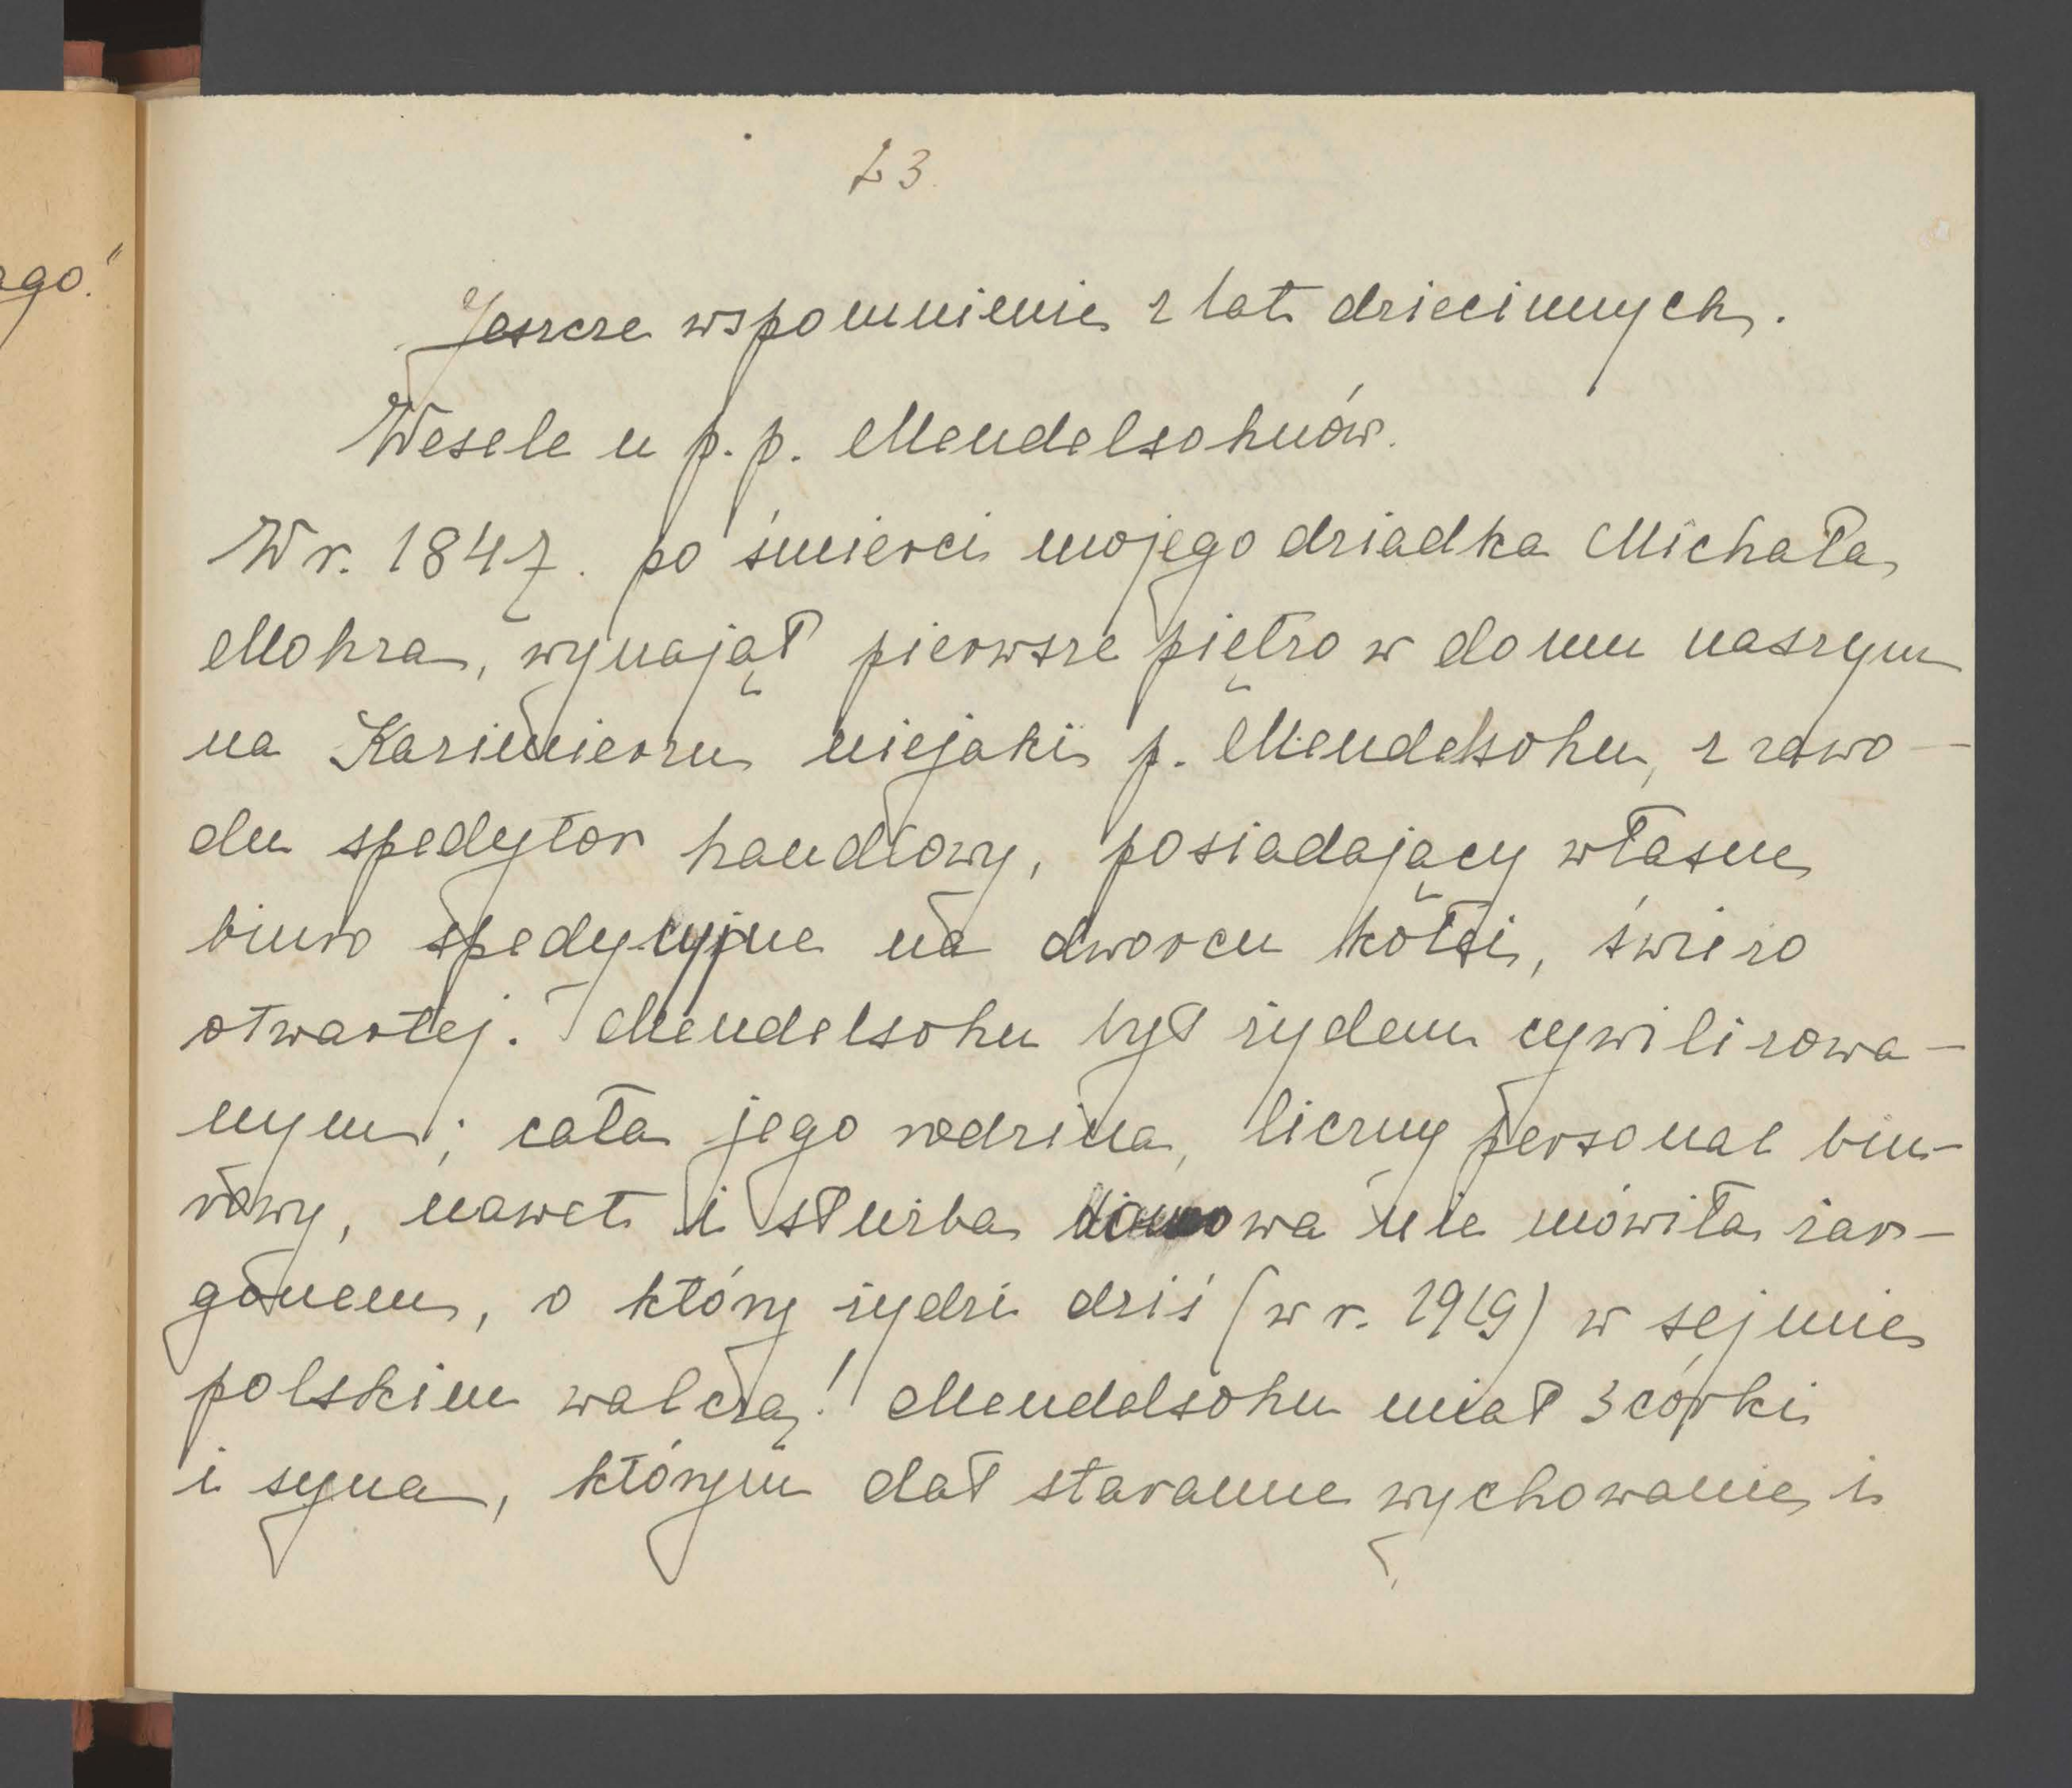 ago."
23.
Jeszcze wspomnienie z lat dziecinnych.
Wesele u p. p. Mendelsohnów.
W r. 1847. po śmierci mojego dziadka Michała
Mohra, wynajął pierwsze piętro w domu naszym
na Kazimierzu niejaki p. Mendelsohn, z zawo-
du spedytor handlowy, posiadający własne
biuro spedycyjne na dworcu kolei, świeżo
otwartej. Mendelsohn był żydem cywilizowa-
nym; cała jego rodzina, liczny personal biu-
rowy, nawet i służba domowa nie mówiła żar-
gonem, o który żydzi dziś (w r. 1919) w sejmie
polskim walczą! Mendelsohn miał 3 córki
i syna, którym dał staranne wychowanie i